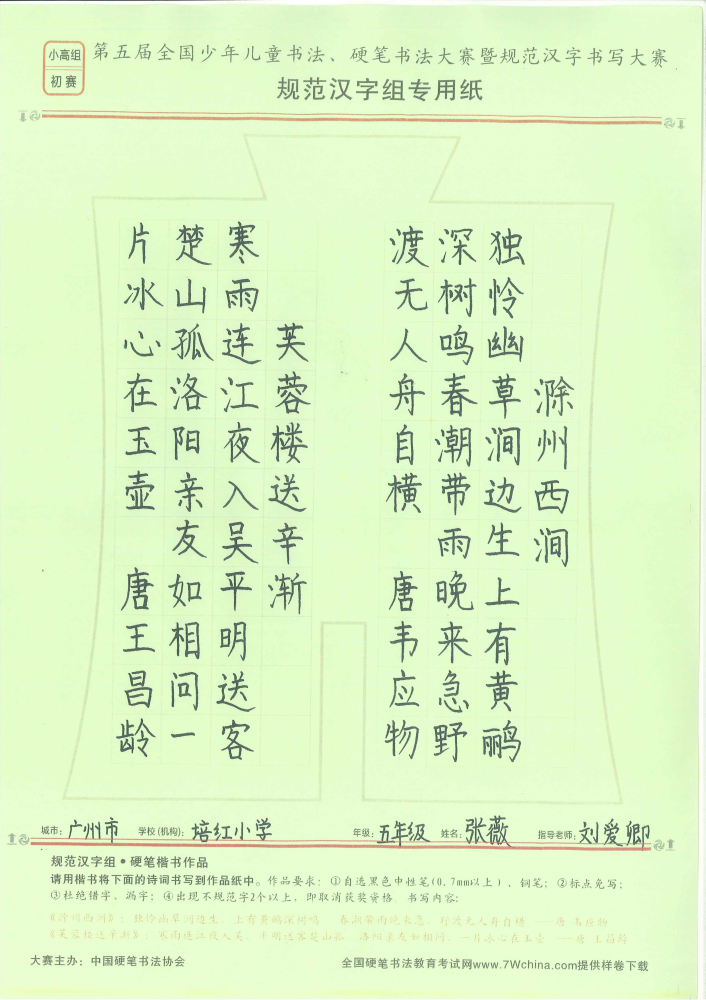 小高组
初赛
第五届全国少年儿童书法、硬笔书法大赛暨规范汉字书写大赛
规范汉字组专用纸
滁州西涧
独怜幽草涧边生上有黄鹂
深树鸣春潮带雨晚来急野
渡无人舟自横 唐韦应物
芙蓉楼送辛渐
寒雨连江夜入吴平明送客
楚山孤洛阳亲友如相问一
片冰心在玉壶 唐王昌龄
城市：广州市 学校(机构)：培红小学 年级：五年级 姓名：张薇 指导老师：刘爱卿
规范汉字组•硬笔楷书作品
请用楷书将下面的诗词书写到作品纸中。作品要求：①自选黑色中性笔(0.7mm以上)、钢笔；②标点免写；
③杜绝错字、漏字；④出现不规范字2个以上，即取消获奖资格。书写内容：
《滁州西涧》：独怜幽草涧边生，上有黄鹂深树鸣。春潮带雨晚来急，野渡无人舟自横。——唐 韦应物
《芙蓉楼送辛渐》：寒雨连江夜入吴，平明送客楚山孤。洛阳亲友如相问，一片冰心在玉壶。——唐 王昌龄
大赛主办：中国硬笔书法协会 全国硬笔书法教育考试网www.7Wchina.com提供样卷下载